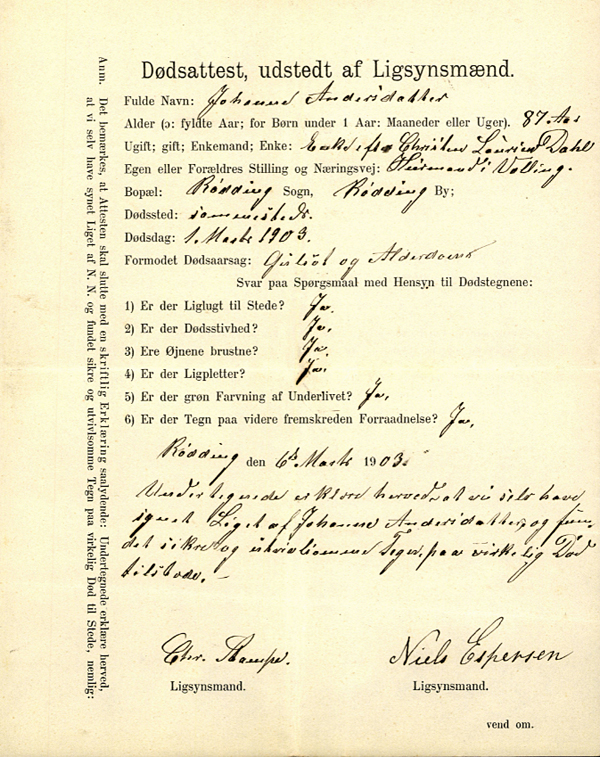 Dødsattest, udstedt af Ligsynsmænd.
Fulde Navn: Johanne Andersdatter
Alder (ɔ: fyldte Aar; for Børn under 1 Aar: Maaneder eller Uger). 87 Aar
Ugift; gift; Enkemand; Enke: Enke eft. Christen Laursen Dahl
Egen eller Forældres Stilling og Næringsvej: Huusmand i Volling.
Bopæl: Rødding Sogn, Rødding By;
Dødssted: sammesteds.
Dødsdag: 1. Marts 1903.
Formodet Dødsaarsag: og Alderdom
Svar paa Spørgsmaal med Hensyn til Dødstegnene:
1) Er der Liglugt til Stede? Ja.
2) Er der Dødsstivhed? Ja,
3) Ere Øjnene brustne? Ja.
4) Er der Ligpletter? Ja.
5) Er der grøn Farvning af Underlivet? Ja,
6) Er der Tegn paa videre fremskreden Forraadnelse? Ja,
Rødding den 6te Marts 1903.
Undertegnede erklære herved, at vi selv have
synet Liget af Johanne Andersdatter, og fun-
det sikre og utvivlsomme Tegn, paa virkelig Død
tilstede. –
Chr. Stampe. Niels Espersen
Ligsynsmand. Ligsynsmand.
vend om.
Anm. Det bemærkes, at Attesten skal slutte med en skriftlig Erklæring saalydende: Undertegnede erklære herved,
at vi selv have synet Liget af N. N. og fundet sikre og utvivlsomme Tegn paa virkelig Død til Stede, nemlig: